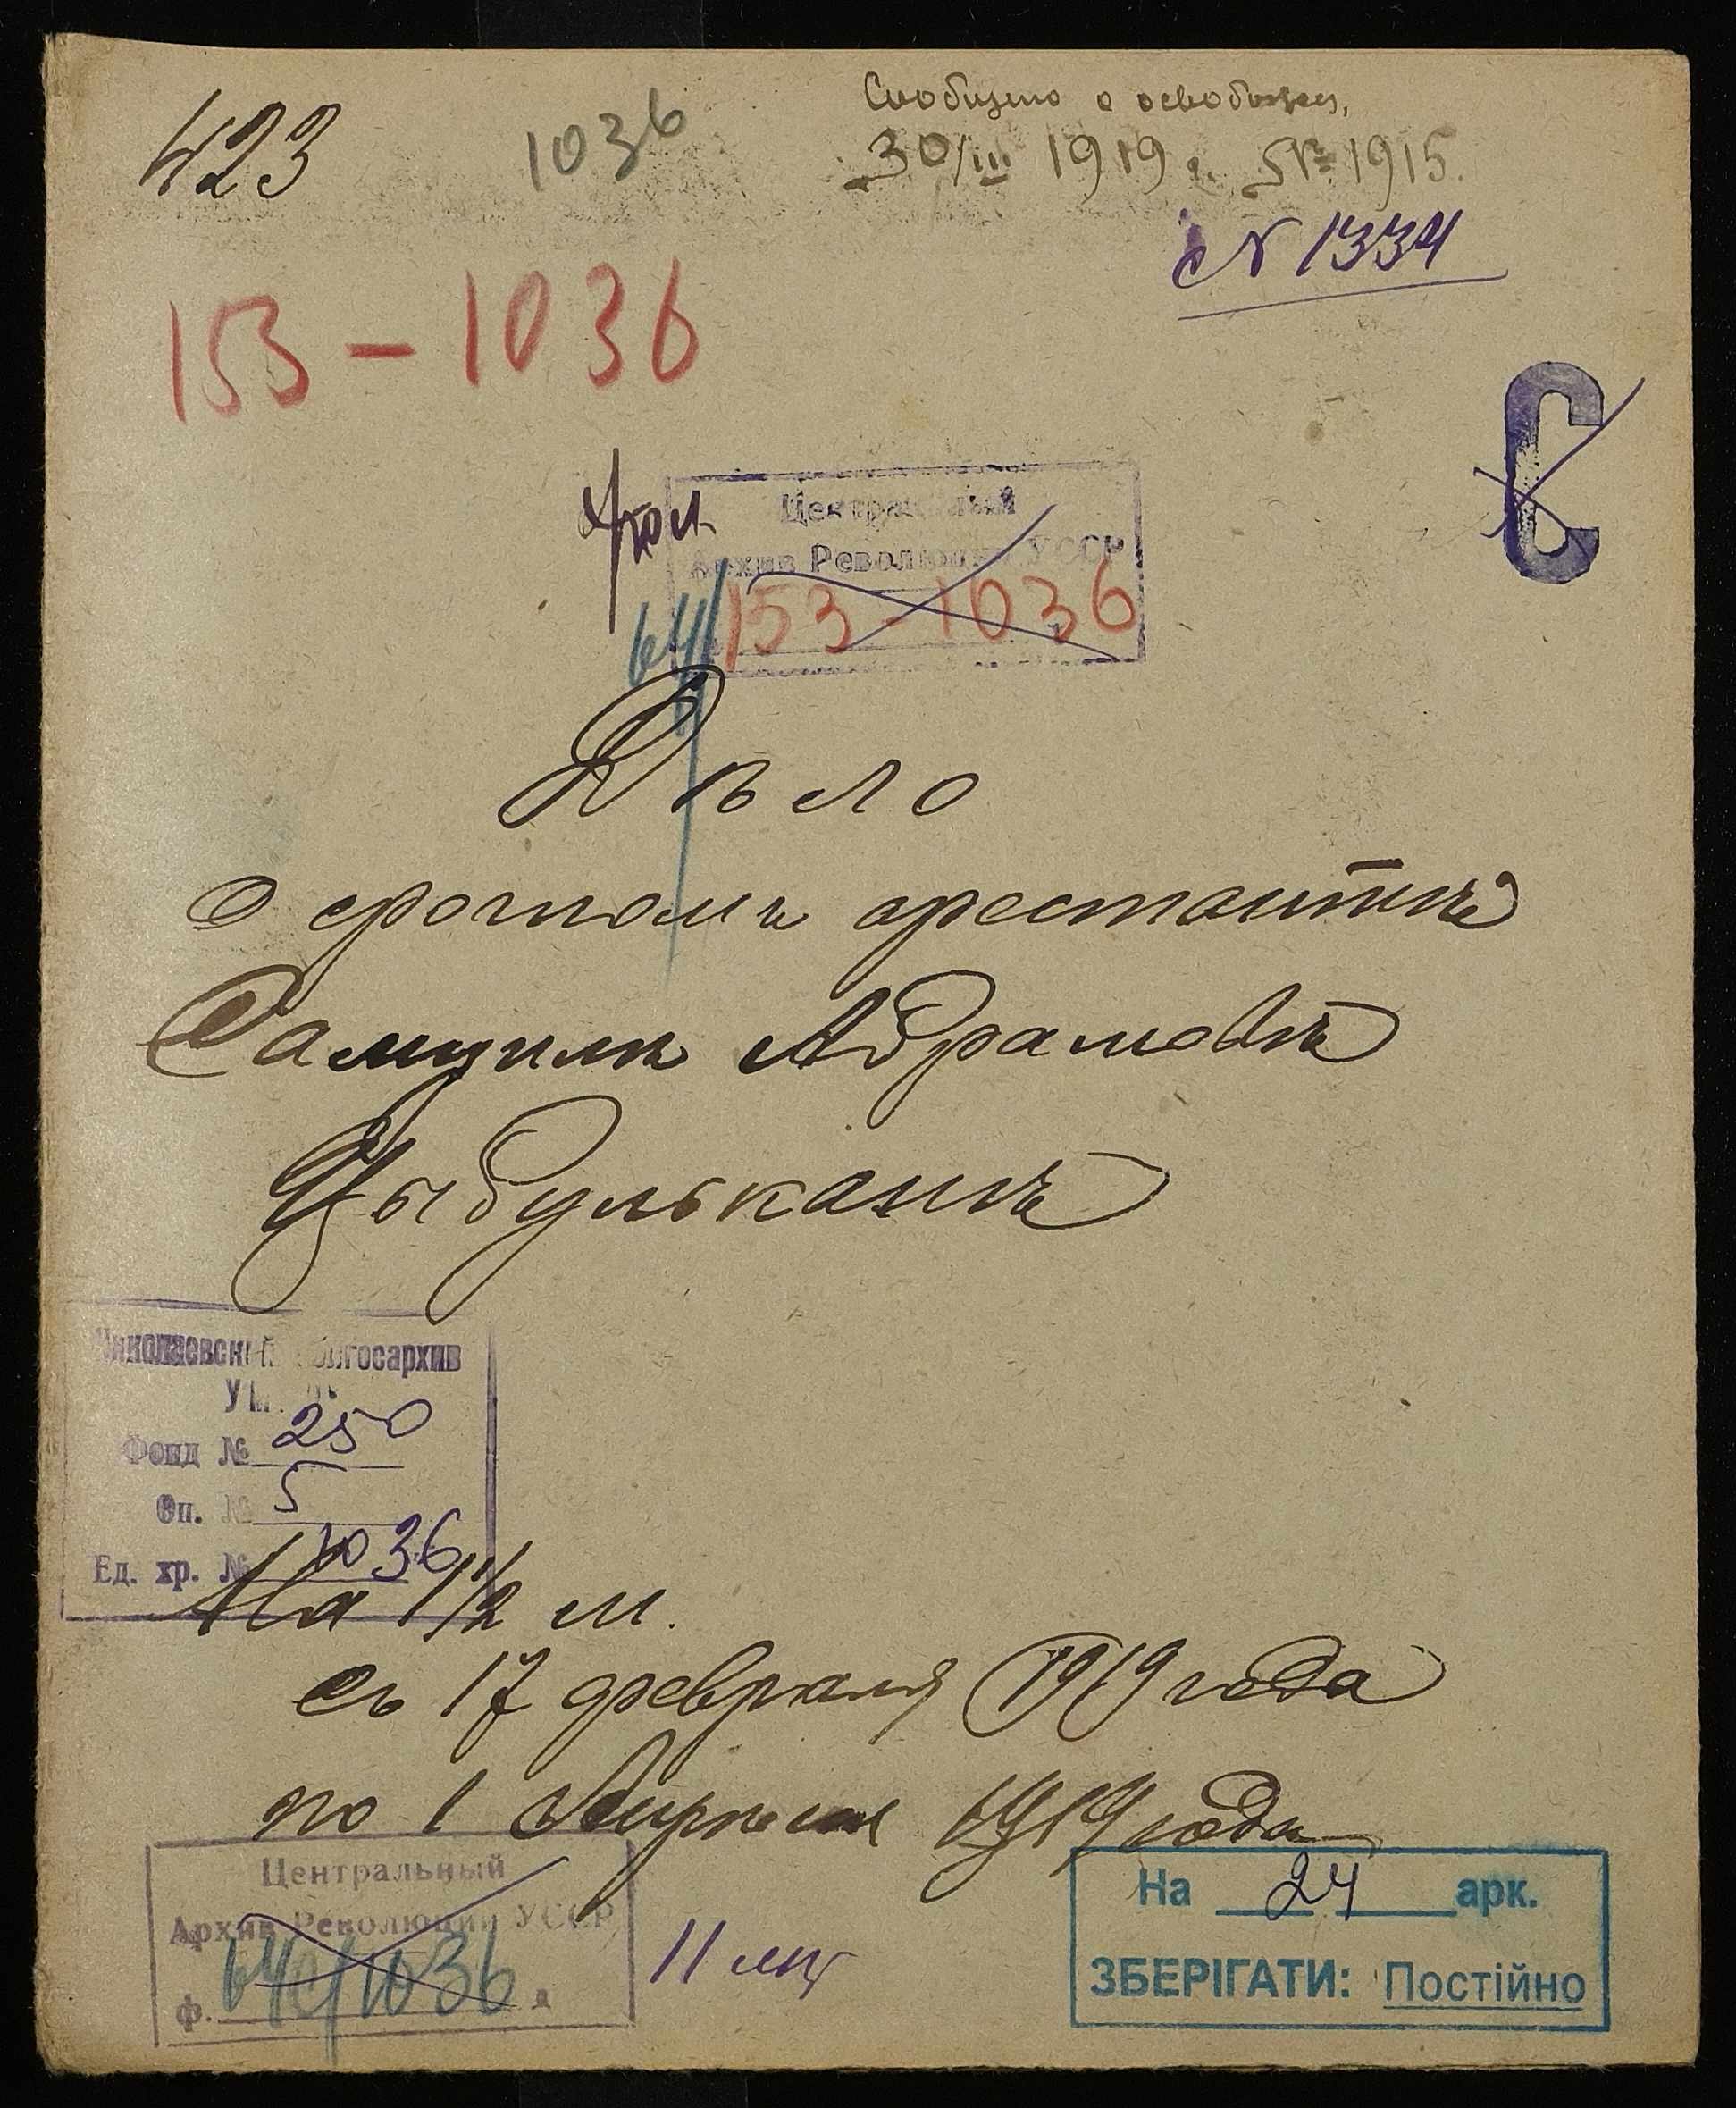 423
1036
Сообщено о освобожден.
30/III 1919 г. № 1915.
№ 1334
153 - 1036
С
Центральный
Архив Революции УССР
153 - 1036
Дѣло
о срочномъ арестантѣ
Самуилѣ Абрамовѣ
Цыбульканѣ
Николаевский облгосархив
Фонд № 250
Оп. № 5
Ед. хр. № 1036
На 1 1/2 м.
съ 17 февраля 1919 года
по 1 Апреля 1919 года
Центральный
Архив Революции УССР
ф. 64/1036 д
11 лщ
На 24 арк.
ЗБЕРІГАТИ: Постійно